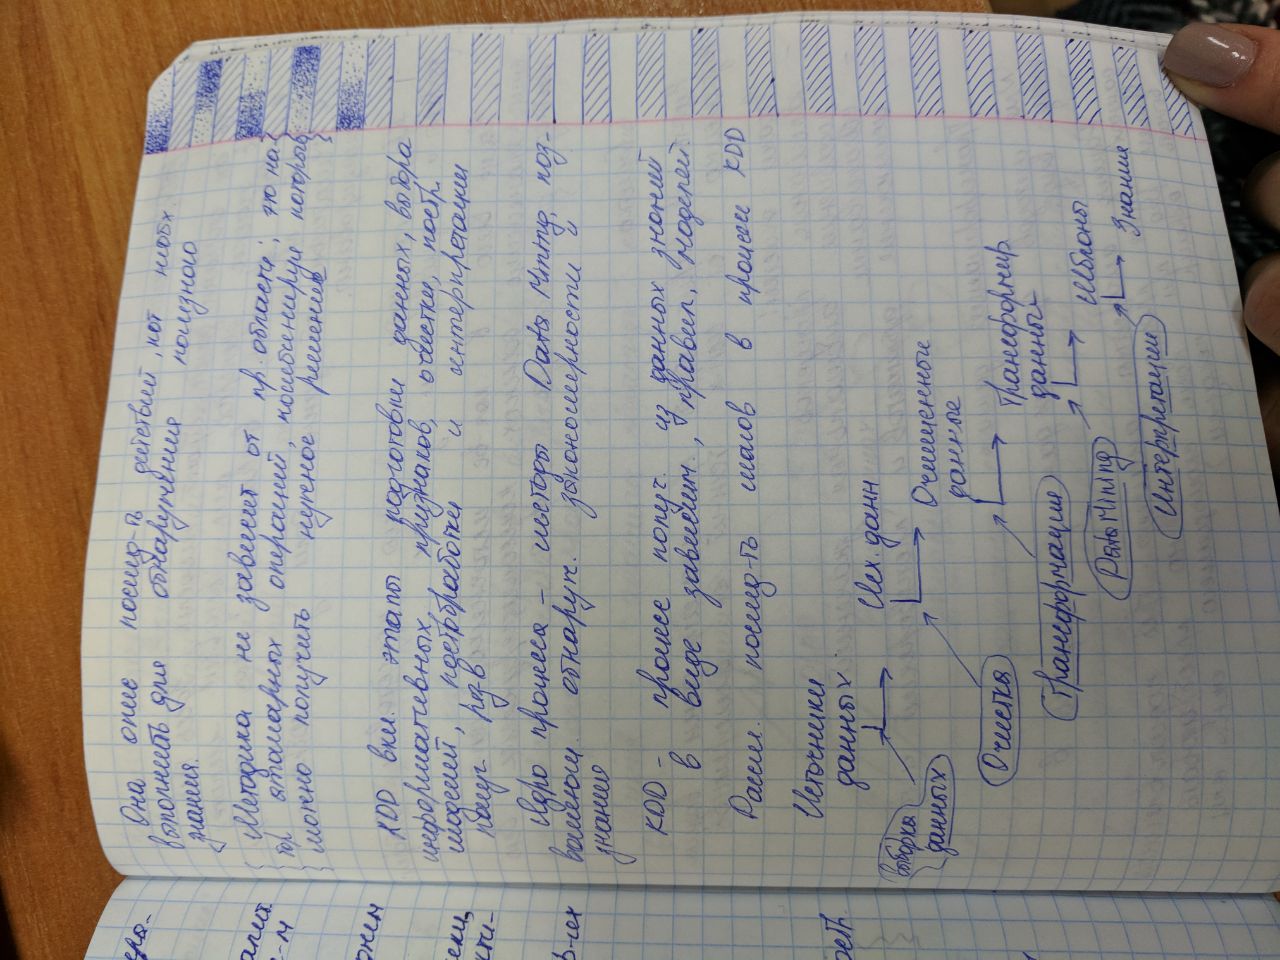 Она опис. послед-ть действий, кот. необх.
выполнить для обнаружения полезного
знания.
Методика не зависит от пр. области; это на-
бор атомарных операций, комбинируя которые,
можно получить нужное решение
KDD вкл. этапы подготовки данных, выбора
информативных признаков, очистки, постр.
моделей, постобработки и интерпретации
получ. рез-в
Ядро процесса - методы Data Mining, поз-
воляющ. обнаруж. закономерности и
знания
KDD - процесс получ. из данных знаний
в виде зависим., правил, моделей.
Рассм. послед-ть шагов в процессе KDD
Источники
данных
Выборка
данных
Исх. данн
Очистка
Очищенные
данные
Трансформация
Трансформир.
данные
Data Mining
Шаблоны
Интерпретация
Знания